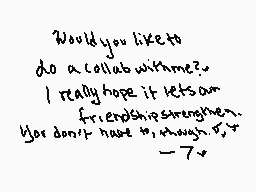 Would you like to
do a collab with me?
I really hope it lets our
friendship strengthen.
You don't have to, though.
-7